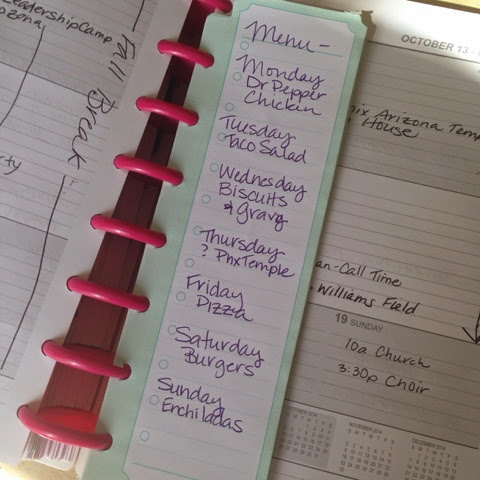 LeadershipCamp
Fall Break
Menu -
Monday
Dr Pepper
Chicken
Tuesday
Taco Salad
Wednesday
Biscuits
& gravy
Thursday
? PhxTemple
Friday
Pizza
Saturday
Burgers
Sunday
Enchiladas
OCTOBER 13 -
Arizona Temp
House
-Call Time
Williams Field
19 SUNDAY
10a Church
3:30p Choir
NOVEMBER 2014
DECEMBER 2014